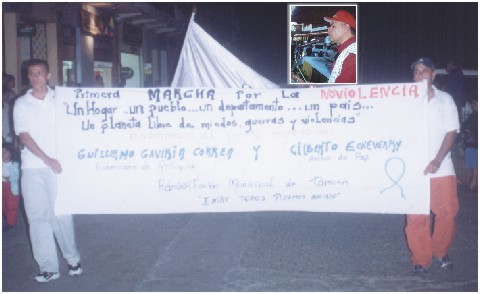 Primera MARCHA Por La NOVIOLENCIA
"Un Hogar...un pueblo...un departamento...un país...
Un planeta libre de miedos, guerras y violencias"
GUILLERMO GAVIRIA CORREA Y GILBERTO ECHEVERRY
Gobernador de Antioquia Asesor de Paz
Administración Municipal de Támesis
TODOS